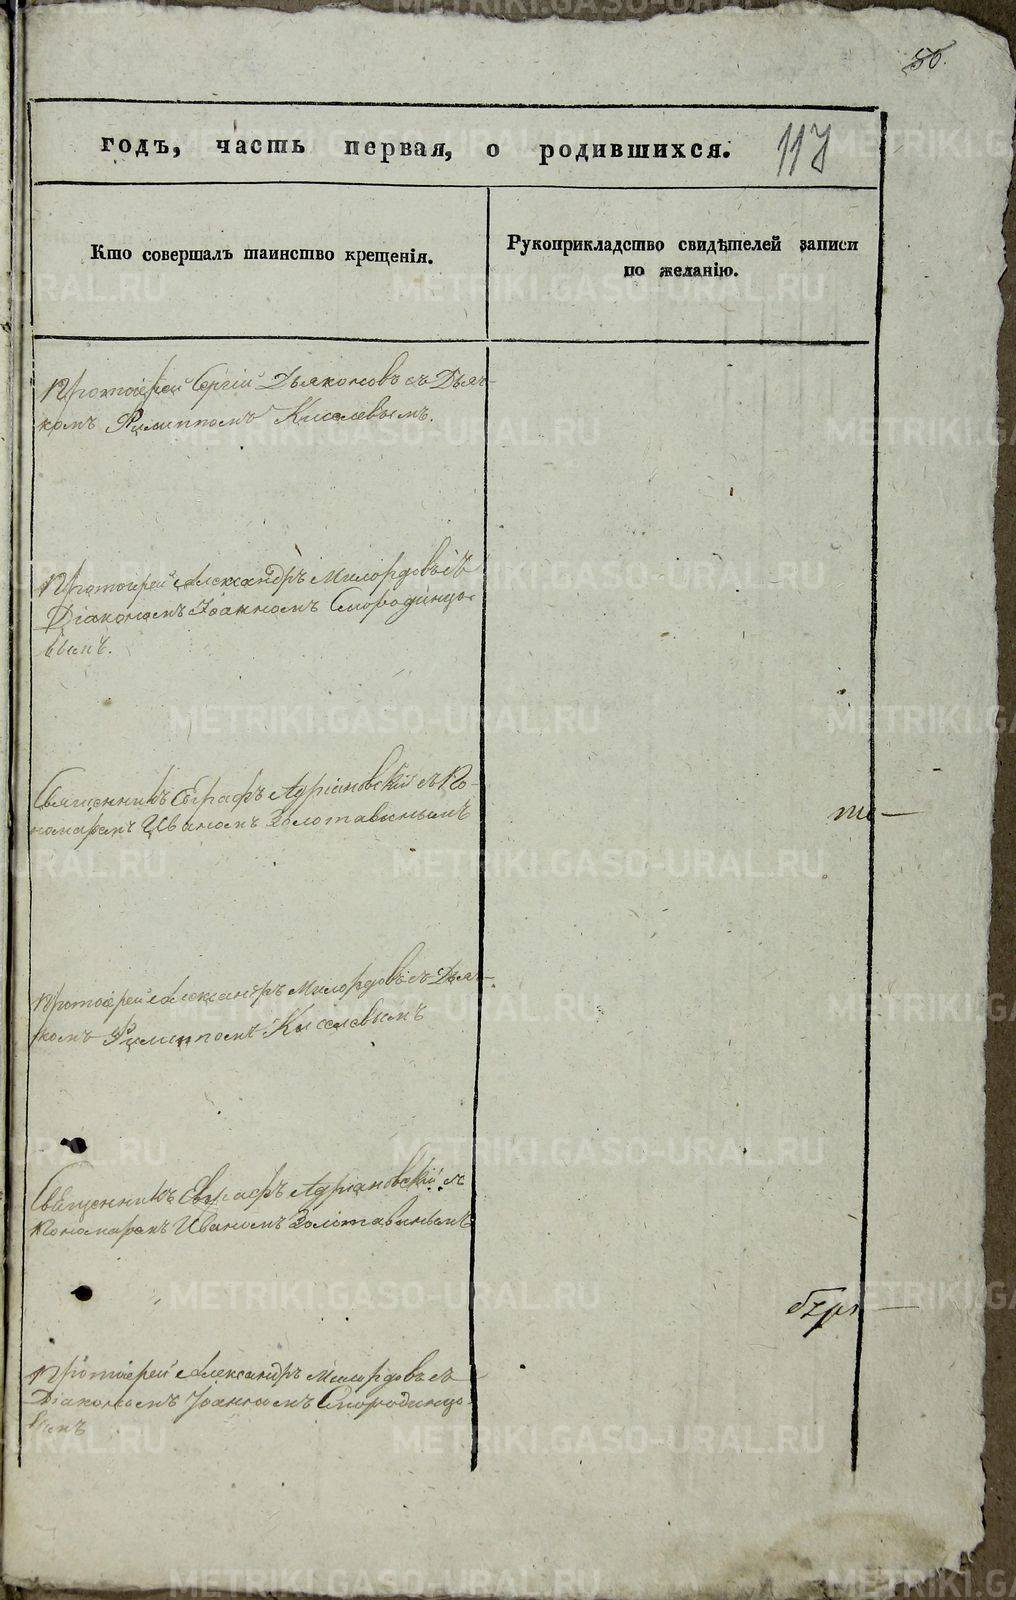 50.
годъ, часть первая, о родившихся. 117
Кто совершалъ таинство крещенія.
Рукоприкладство свидѣтелей записи
по желанію.
Протоіерей Сергій Дьяконовъ съ Дьяч-
комъ Филиппомъ Киселевымъ.
Протоіерей Александръ Милордовъ съ
Діакономъ Іоанномъ Смородинцо-
вымъ.
Священникъ Евграфъ Адріановскій съ По-
номаремъ Иваномъ Золотавинымъ
Протоіерей Александръ Милордовъ съ Дьяч-
комъ Филиппомъ Киселевымъ
Священникъ Евграфъ Адріановскій съ
Пономаремъ Иваномъ Золотавинымъ
Протоіерей Александръ Милордовъ съ
Діакономъ Іоанномъ Смородинцо-
вымъ
METRIKI.GASO-URAL.RU